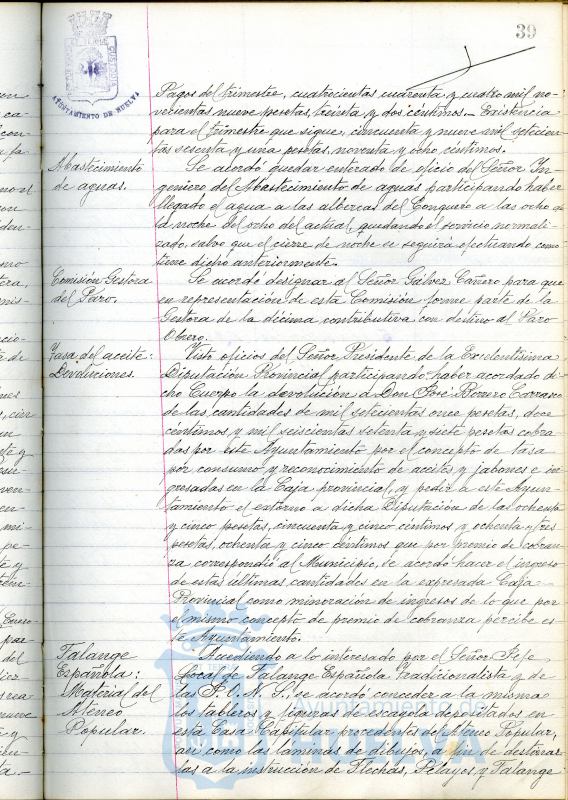 39
AYUNTAMIENTO DE HUELVA
Pagos del trimestre, cuatrocientas cuarenta y cuatro mil no-
vecientas nueve pesetas, treinta y dos céntimos.- Existencia
para el trimestre que sigue, cincuenta y nueve mil setecien-
tas sesenta y una pesetas, noventa y ocho céntimos.
Abastecimiento
de aguas.
Se acordó quedar enterado de oficio del Señor In-
geniero del Abastecimiento de aguas participando haber
llegado el agua a las albercas del Conquero a las ocho de
la noche del ocho del actual, quedando el servicio normali-
zado, salvo que el cierre de noche se seguirá efectuando como
tiene dicho anteriormente.
Comisión Gestora
del Paro.
Se acordó designar al Señor Gálvez Cañero para que
en representación de esta Comisión forme parte de la
Gestora de la décima contributiva con destino al Paro
Obrero.
Tasa del aceite:
Devoluciones.
Visto oficios del Señor Presidente de la Excelentísima
Diputación Provincial participando haber acordado di-
cho Cuerpo la devolución a Don José Romero Carrasco
de las cantidades de mil setecientas once pesetas, doce
céntimos y mil seiscientas setenta y siete pesetas cobra-
das por este Ayuntamiento por el concepto de tasa
por consumo y reconocimiento de aceites y jabones e in-
gresadas en la Caja provincial, y pedir a este Ayun-
tamiento el retorno a dicha Diputación de las ochenta
y cinco pesetas, cincuenta y cinco céntimos y ochenta y tres
pesetas, ochenta y cinco céntimos que por premio de cobran-
za correspondió al Municipio, se acordó hacer el ingreso
de estas últimas cantidades en la expresada Caja
Provincial como minoración de ingresos de lo que por
el mismo concepto de premio de cobranza percibe es-
te Ayuntamiento.
Falange
Española:
Material del
Ateneo
Popular.
Accediendo a lo interesado por el Señor Jefe
Local de Falange Española Tradicionalista y de
las J.O.N.S., se acordó conceder a la misma
los tableros y figuras de escayola depositados en
esta Casa Capitular procedentes del Ateneo Popular,
así como las láminas de dibujos, a fin de destinar-
las a la instrucción de Flechas, Pelayos y Falange
Ayuntamiento de
HUELVA